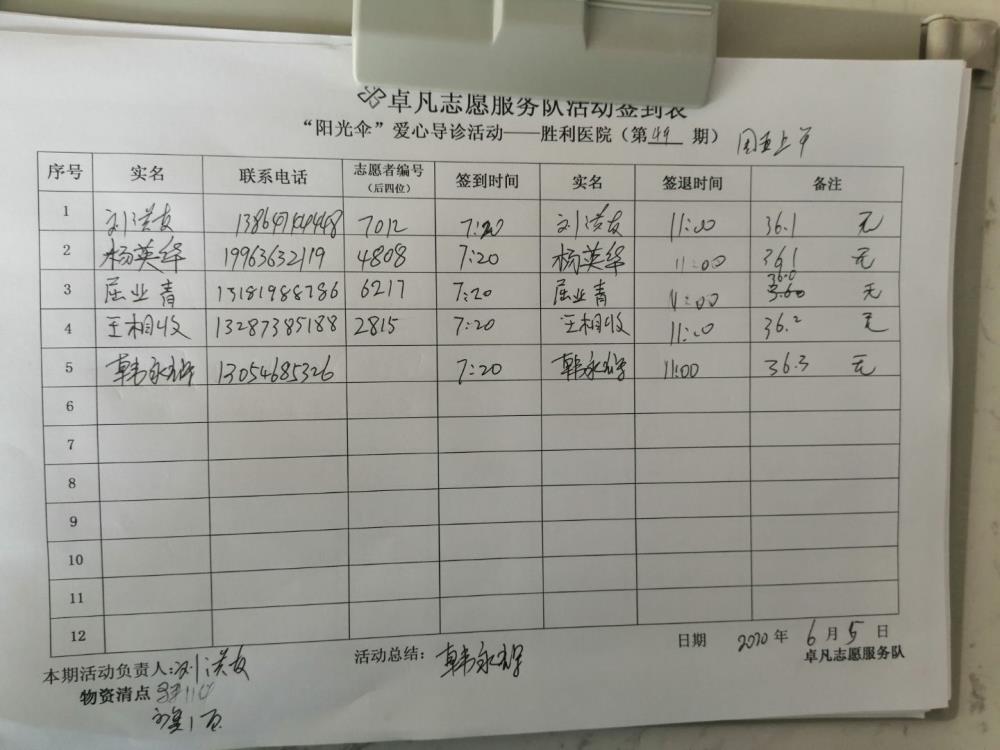 卓凡志愿服务队活动签到表
“阳光伞”爱心导诊活动——胜利医院（第49期） 周五上午
序号 实名 联系电话 志愿者编号（后四位） 签到时间 实名 签退时间 备注
1 刘洪友 7012 7:20 刘洪友 11:00 36.1 无
2 杨英华 19963632119 4808 7:20 杨英华 11:00 36.1 无
3 屈业青 13181988786 6217 7:20 屈业青 11:00 36.0 无
4 王相收 13287385188 2815 7:20 王相收 11:00 36.2 无
5 韩永 13054685326 7:20 韩永 11:00 36.3 无
6
7
8
9
10
11
12
日期 2020年6月5日
本期活动负责人:刘洪友 活动总结: 韩永
卓凡志愿服务队
物资清点